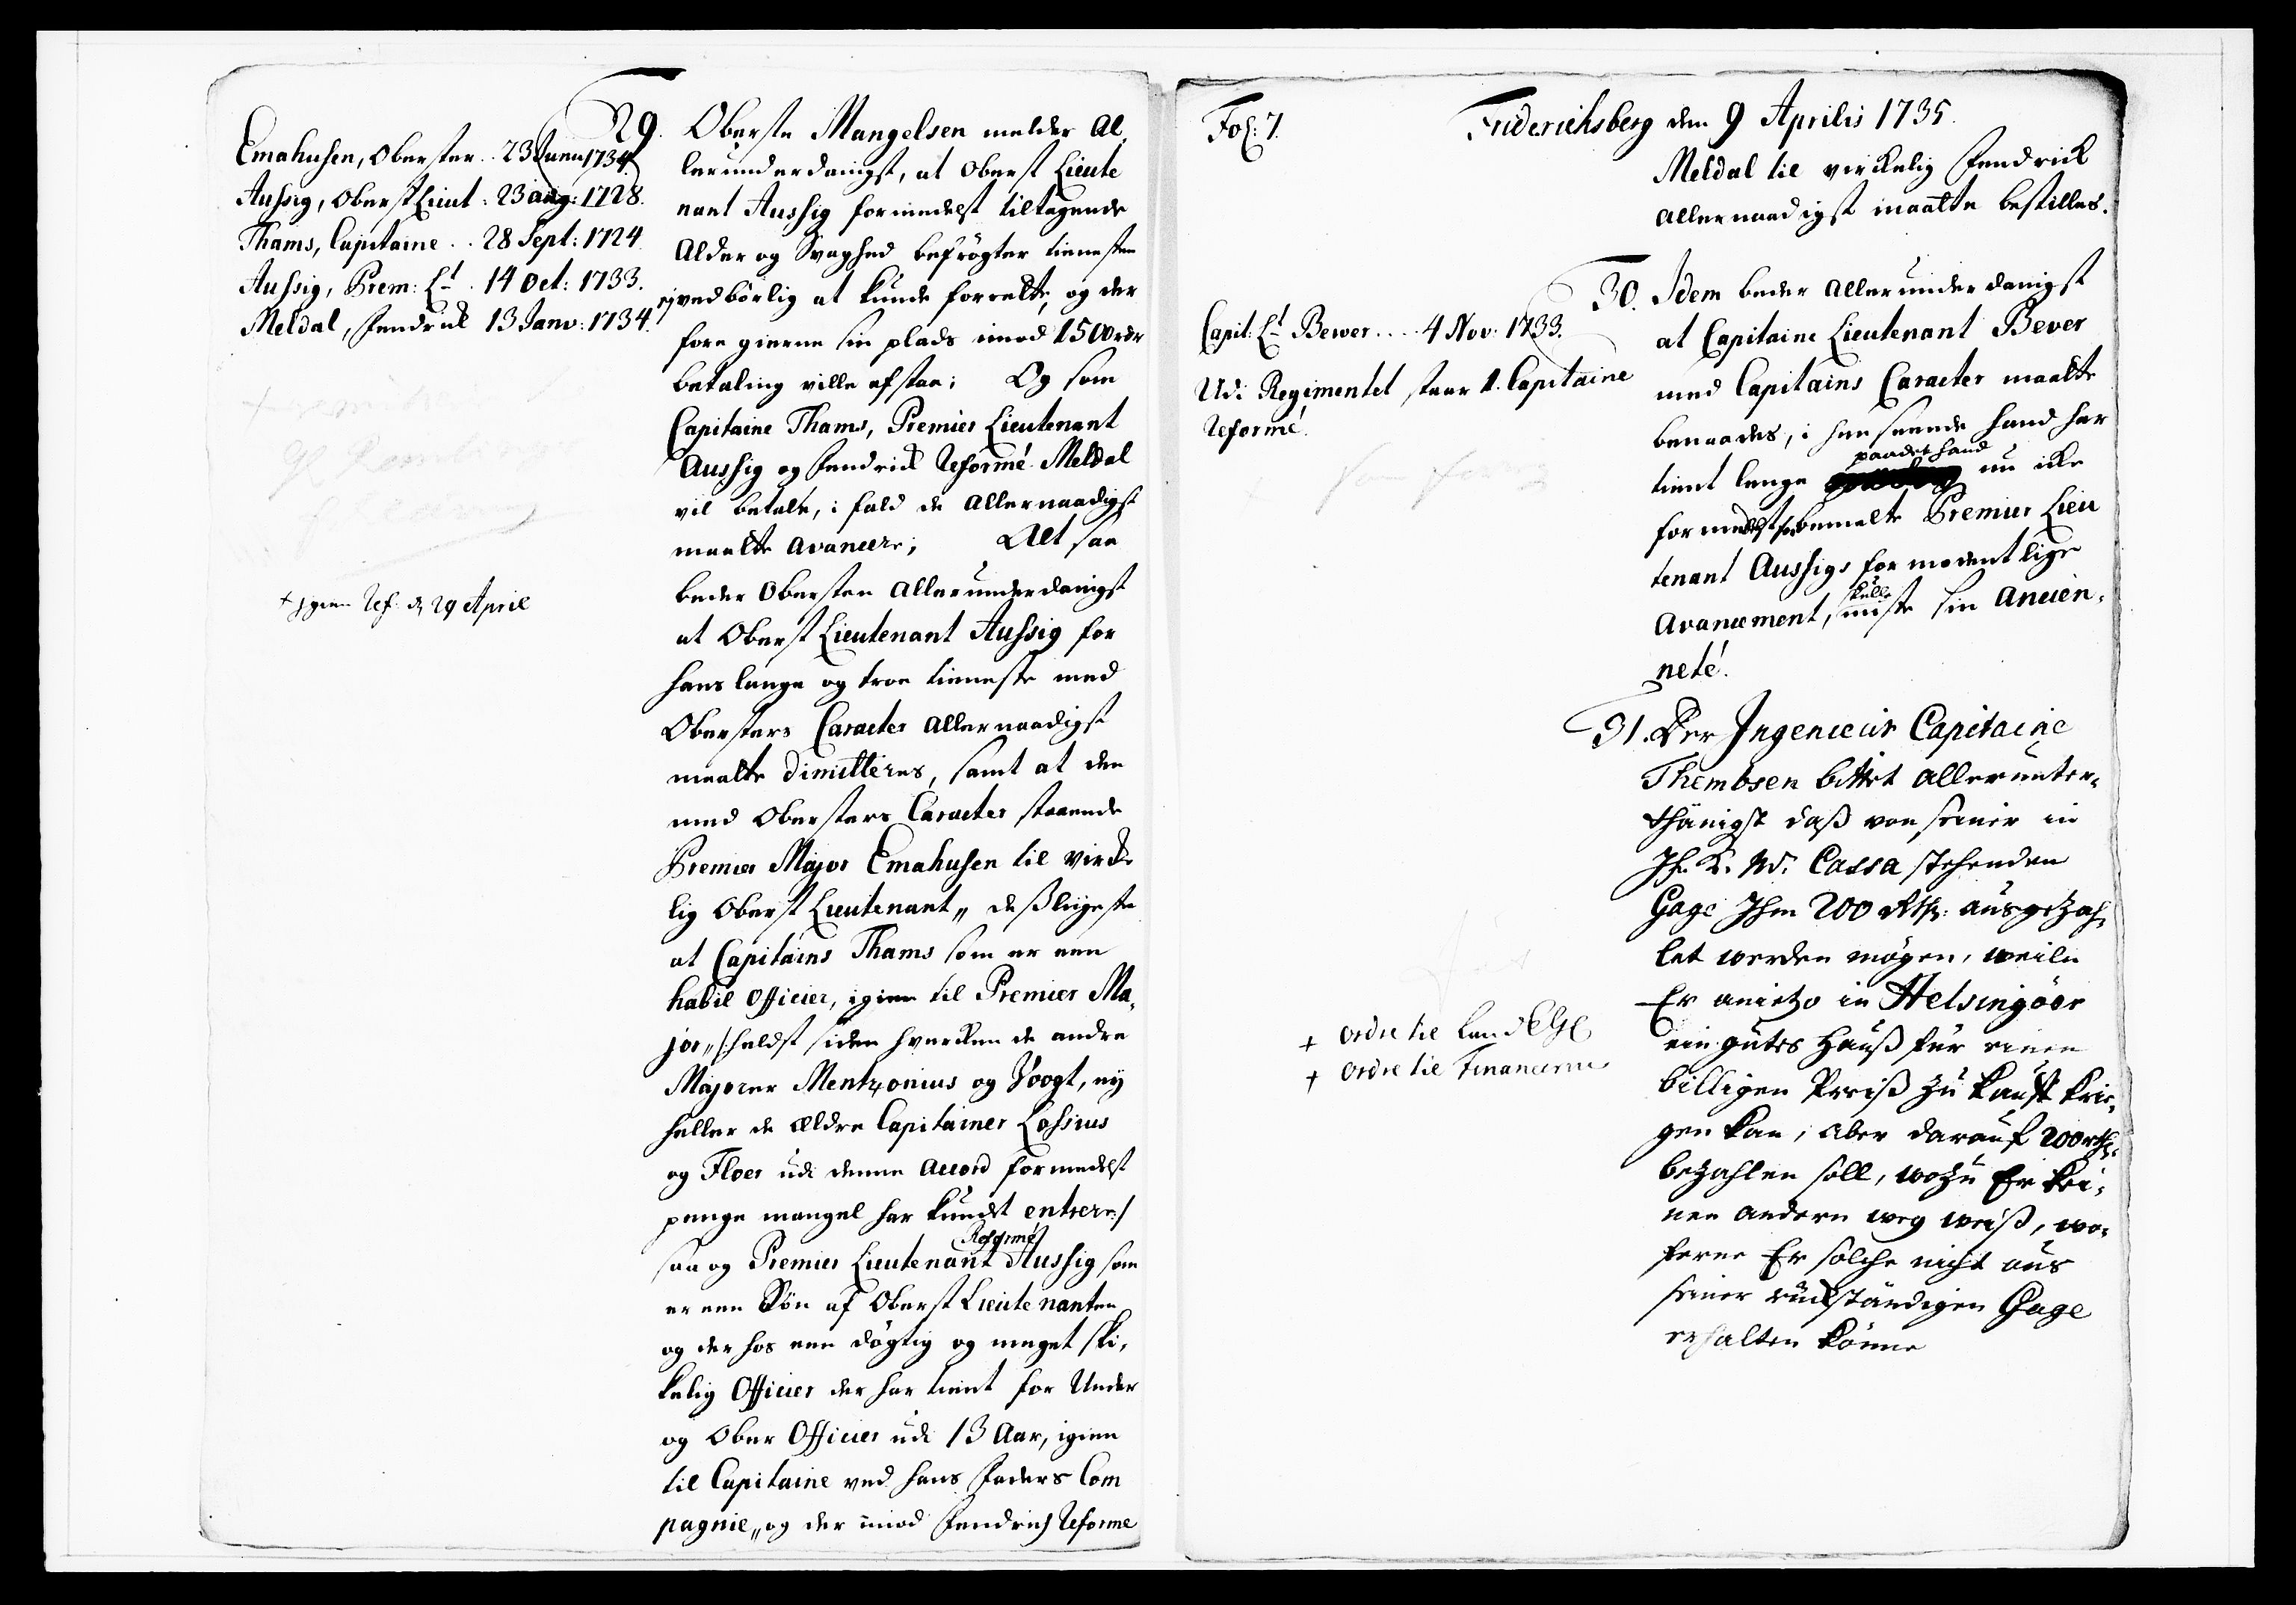 Emahusen, Oberster .. 23 Junii 1734.
Aussig, Oberst Lieut : 23 aug: 1728.
Thams, Capitaine .. 28 Sept: 1724
Aussig, Prem: Lt . 14 Oct: 1733.
Meldal, Fendrick 13 Janv: 1734.
+ igien Ref: d 29 April
29. Oberste Mangelsen melder Al,
lerunderdanigst, at Oberst Lieute
nant Aussig formedelst tiltagende
Alder og Svaghed befrögter tienesten
ej vedbörlig at kunde forrette, og der
fore gierne sin plads imod 1500 rdr
betaling ville afstaa; Og som
Capitaine Thams, Premier Lieutenant
Aussig og Fendrick Reformé Meldal
vil betale, i fald de Allernaadigst
maatte avancere; Alt saa
beder Obersten Allerunderdanigst
at Oberst Lieutenant Aussig for
hans lange og troe tieneste med
Obersters Caracter Allernaadigst
maatte dimitteres, samt at den
med Obersters Caracter staaende
Premier Major Emahusen til virke
lig Oberst Lieutenant,, desligeste
at Capitains Thams som er een
habil Officier, igien til Premier Ma,
jor,, /:heldst siden hverken de andre
Majorer Mentzonius og Voogt, ey
heller de ældre Capitainer Lossius
og Floer udi denne accord formedelst
penge mangel har kundet entrere:/
saa og Premier Lieutenant Reformé Aussig som
er een Sön af Oberst Lieutenanten
og der hos een dögtig og meget ski,
kelig Officier der har tient for Under
og Ober Officier udi 13 Aar, igien
til Capitaine ved hans Faders Com
pagnie,, og der imod Fendrich Reforme
Fol: 7.
Friderichsberg den 9 Aprilis 1735.
Meldal til virkelig Fendrick
allernaadigst maatte bestilles.
Capit: Lt Bewer .... 4 Nov: 1733.
Udi Regimentet staar 1. Capitaine
Reformé.
30. Idem beder Allerunderdanigst
at Capitaine Lieutenant Bever
med Capitains Caracter maatte
benaades, i henseende hand har
tient lenge paadet hand nu icke
formedelst bemelte Premier Lieu
tenant Aussigs formodentlige
Avancement, skulle miste sin Ancien,
neté.
+ ordre til Land
+ ordre til Financerne
31. Der Ingenieur Capitaine
Thembsen bittet allerunter,
thänigst daß von seiner in
Ih. K. M. Cassa stehenden
Gage Ihm 200 Rth: ausgezah,
let werden mögen, weiln
Er anietzo in Helsingöer
ein gutes Hauß für einen
billigen Preiß zu Kauff krie,
gen kan, aber darauf 200 rth:
bezahlen soll, wozu Er kei,
nen andern weg weiß, wo,
ferne Er solche nicht aus
seiner rückständigen Gage
erhalten könne